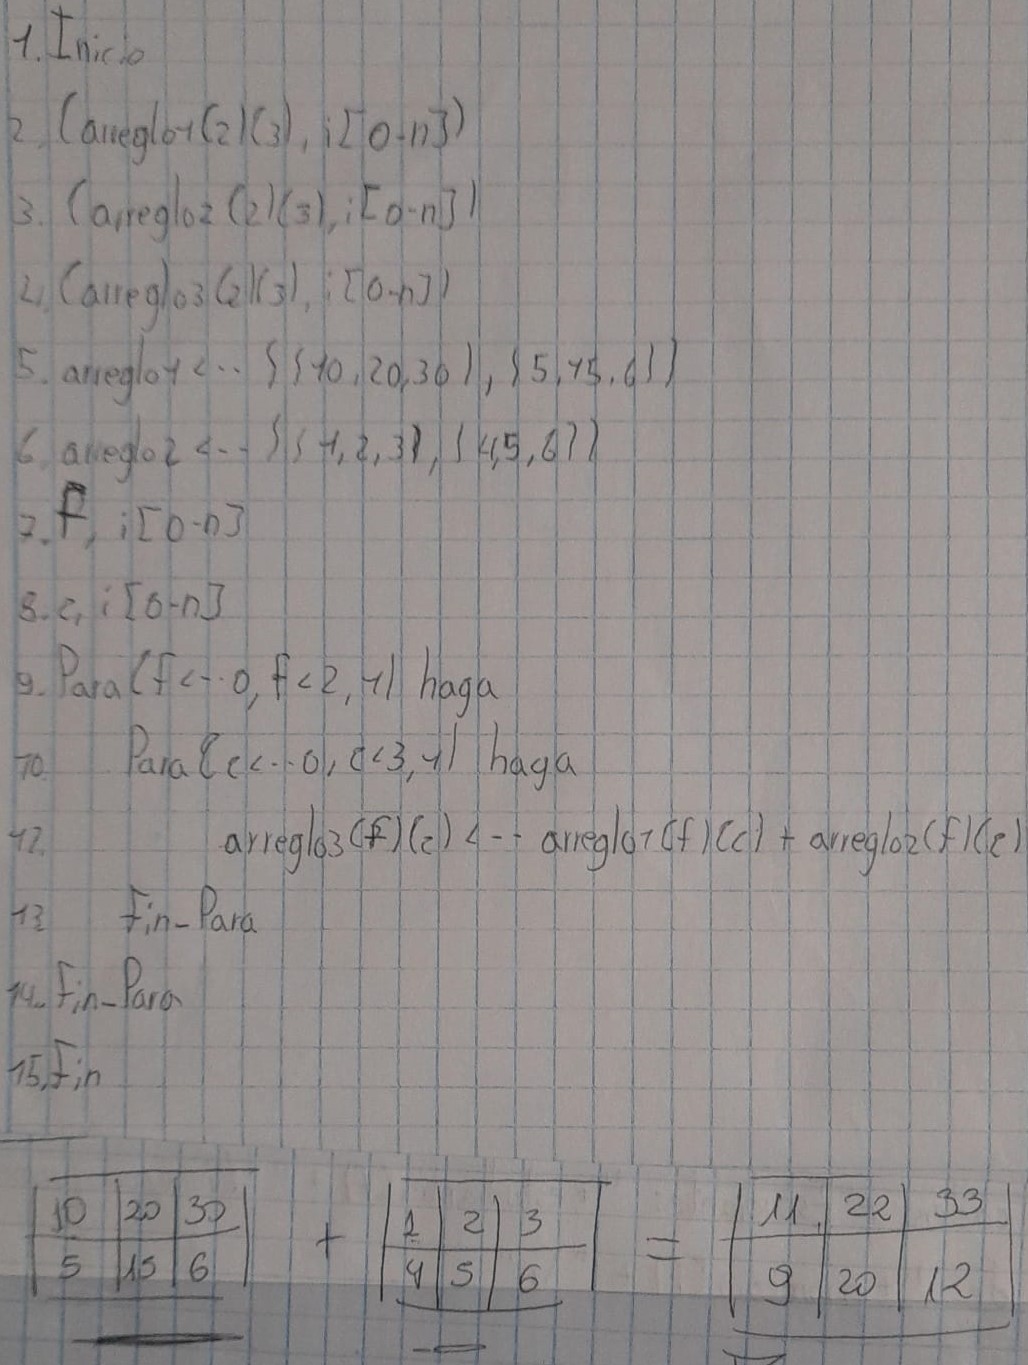 1. Inicio
2. (arreglo1(2)(3), i[0-n])
3. (arreglo2(2)(3), i[0-n])
4. (arreglo3(2)(3), i[0-n])
5. arreglo1 <-- {{10,20,30}, {5,15,6}}
6. arreglo2 <-- {{1,2,3}, {4,5,6}}
7. f, i[0-n]
8. c, i[0-n]
9. Para (f <-- 0, f < 2, 1) haga
10. Para (c <-- 0, c < 3, 1) haga
12. arreglo3(f)(c) <-- arreglo1(f)(c) + arreglo2(f)(c)
13 Fin-Para
14. Fin-Para
15. Fin
10 20 30 + 1 2 3 = 11 22 33
5 15 6 4 5 6 9 20 12